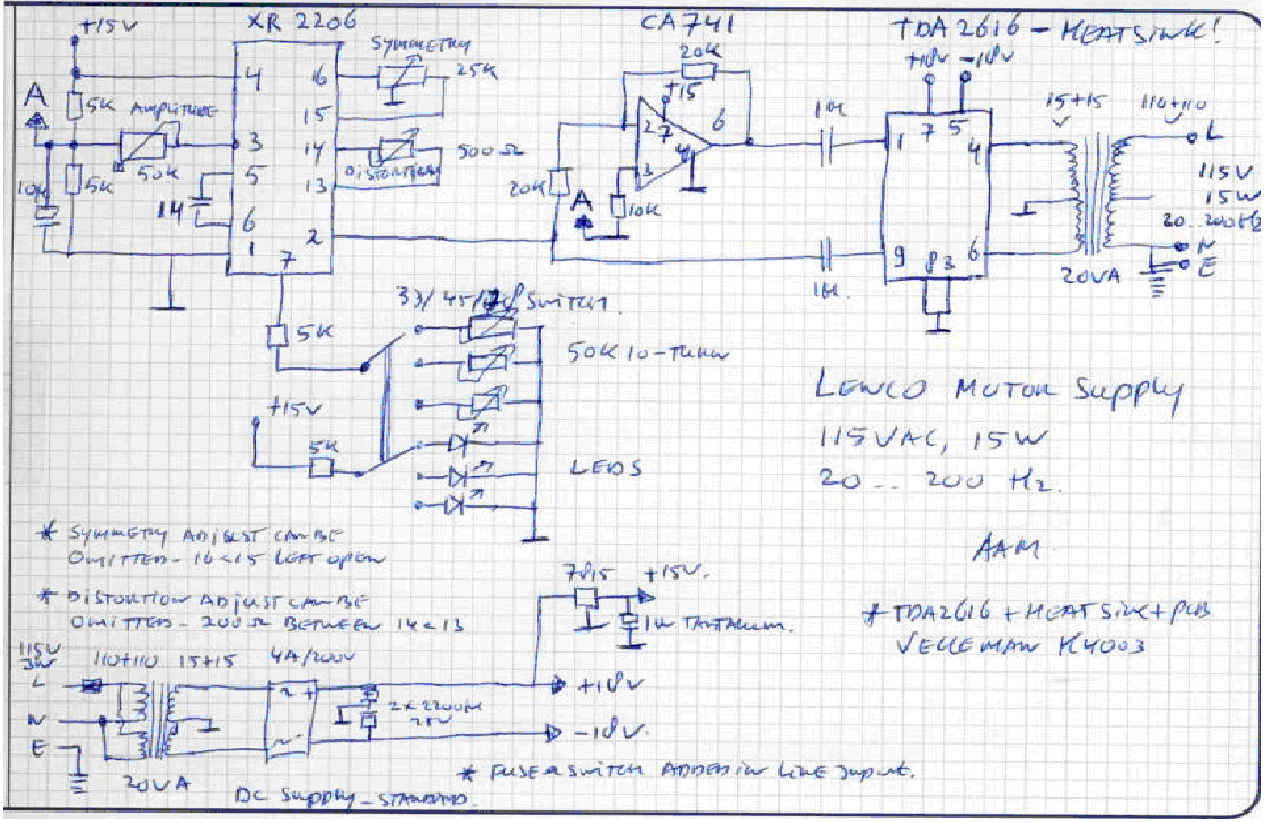 XR 2206
CA741
TDA2616 - HEATSINK!
+15V
4
16
SYMMETRY
25K
15
A
5K
AMPLITUDE
50K
3
14
500Ω
DISTORTION
13
5
5K
6
1
2
7
20K
+15
2
7
6
3
4
20K
A
10K
+18V -18V
1
7
5
4
9
8
3
6
15+15
110+110
L
115V
15W
20..200Hz
N
E
20VA
5K
SWITCH
50K 10-TURN
+15V
5K
LEDS
LENCO MOTOR SUPPLY
115VAC, 15W
20 .. 200 Hz.
AAM
* SYMMETRY ADJUST CAN BE
OMITTED - 16 & 15 LEFT OPEN
* DISTORTION ADJUST CAN BE
OMITTED - 200Ω BETWEEN 14 & 13
* TDA2616 + HEATSINK + PCB
VELLEMAN K4003
7815
+15V.
1µ TANTALUM.
115V
3W
110+110
15+15
4A/200V
L
N
E
~ +
~ -
2x2200µ
25V
+18V
-18V.
20VA
DC SUPPLY - STANDARD.
* FUSE & SWITCH ADDED IN LINE INPUT.